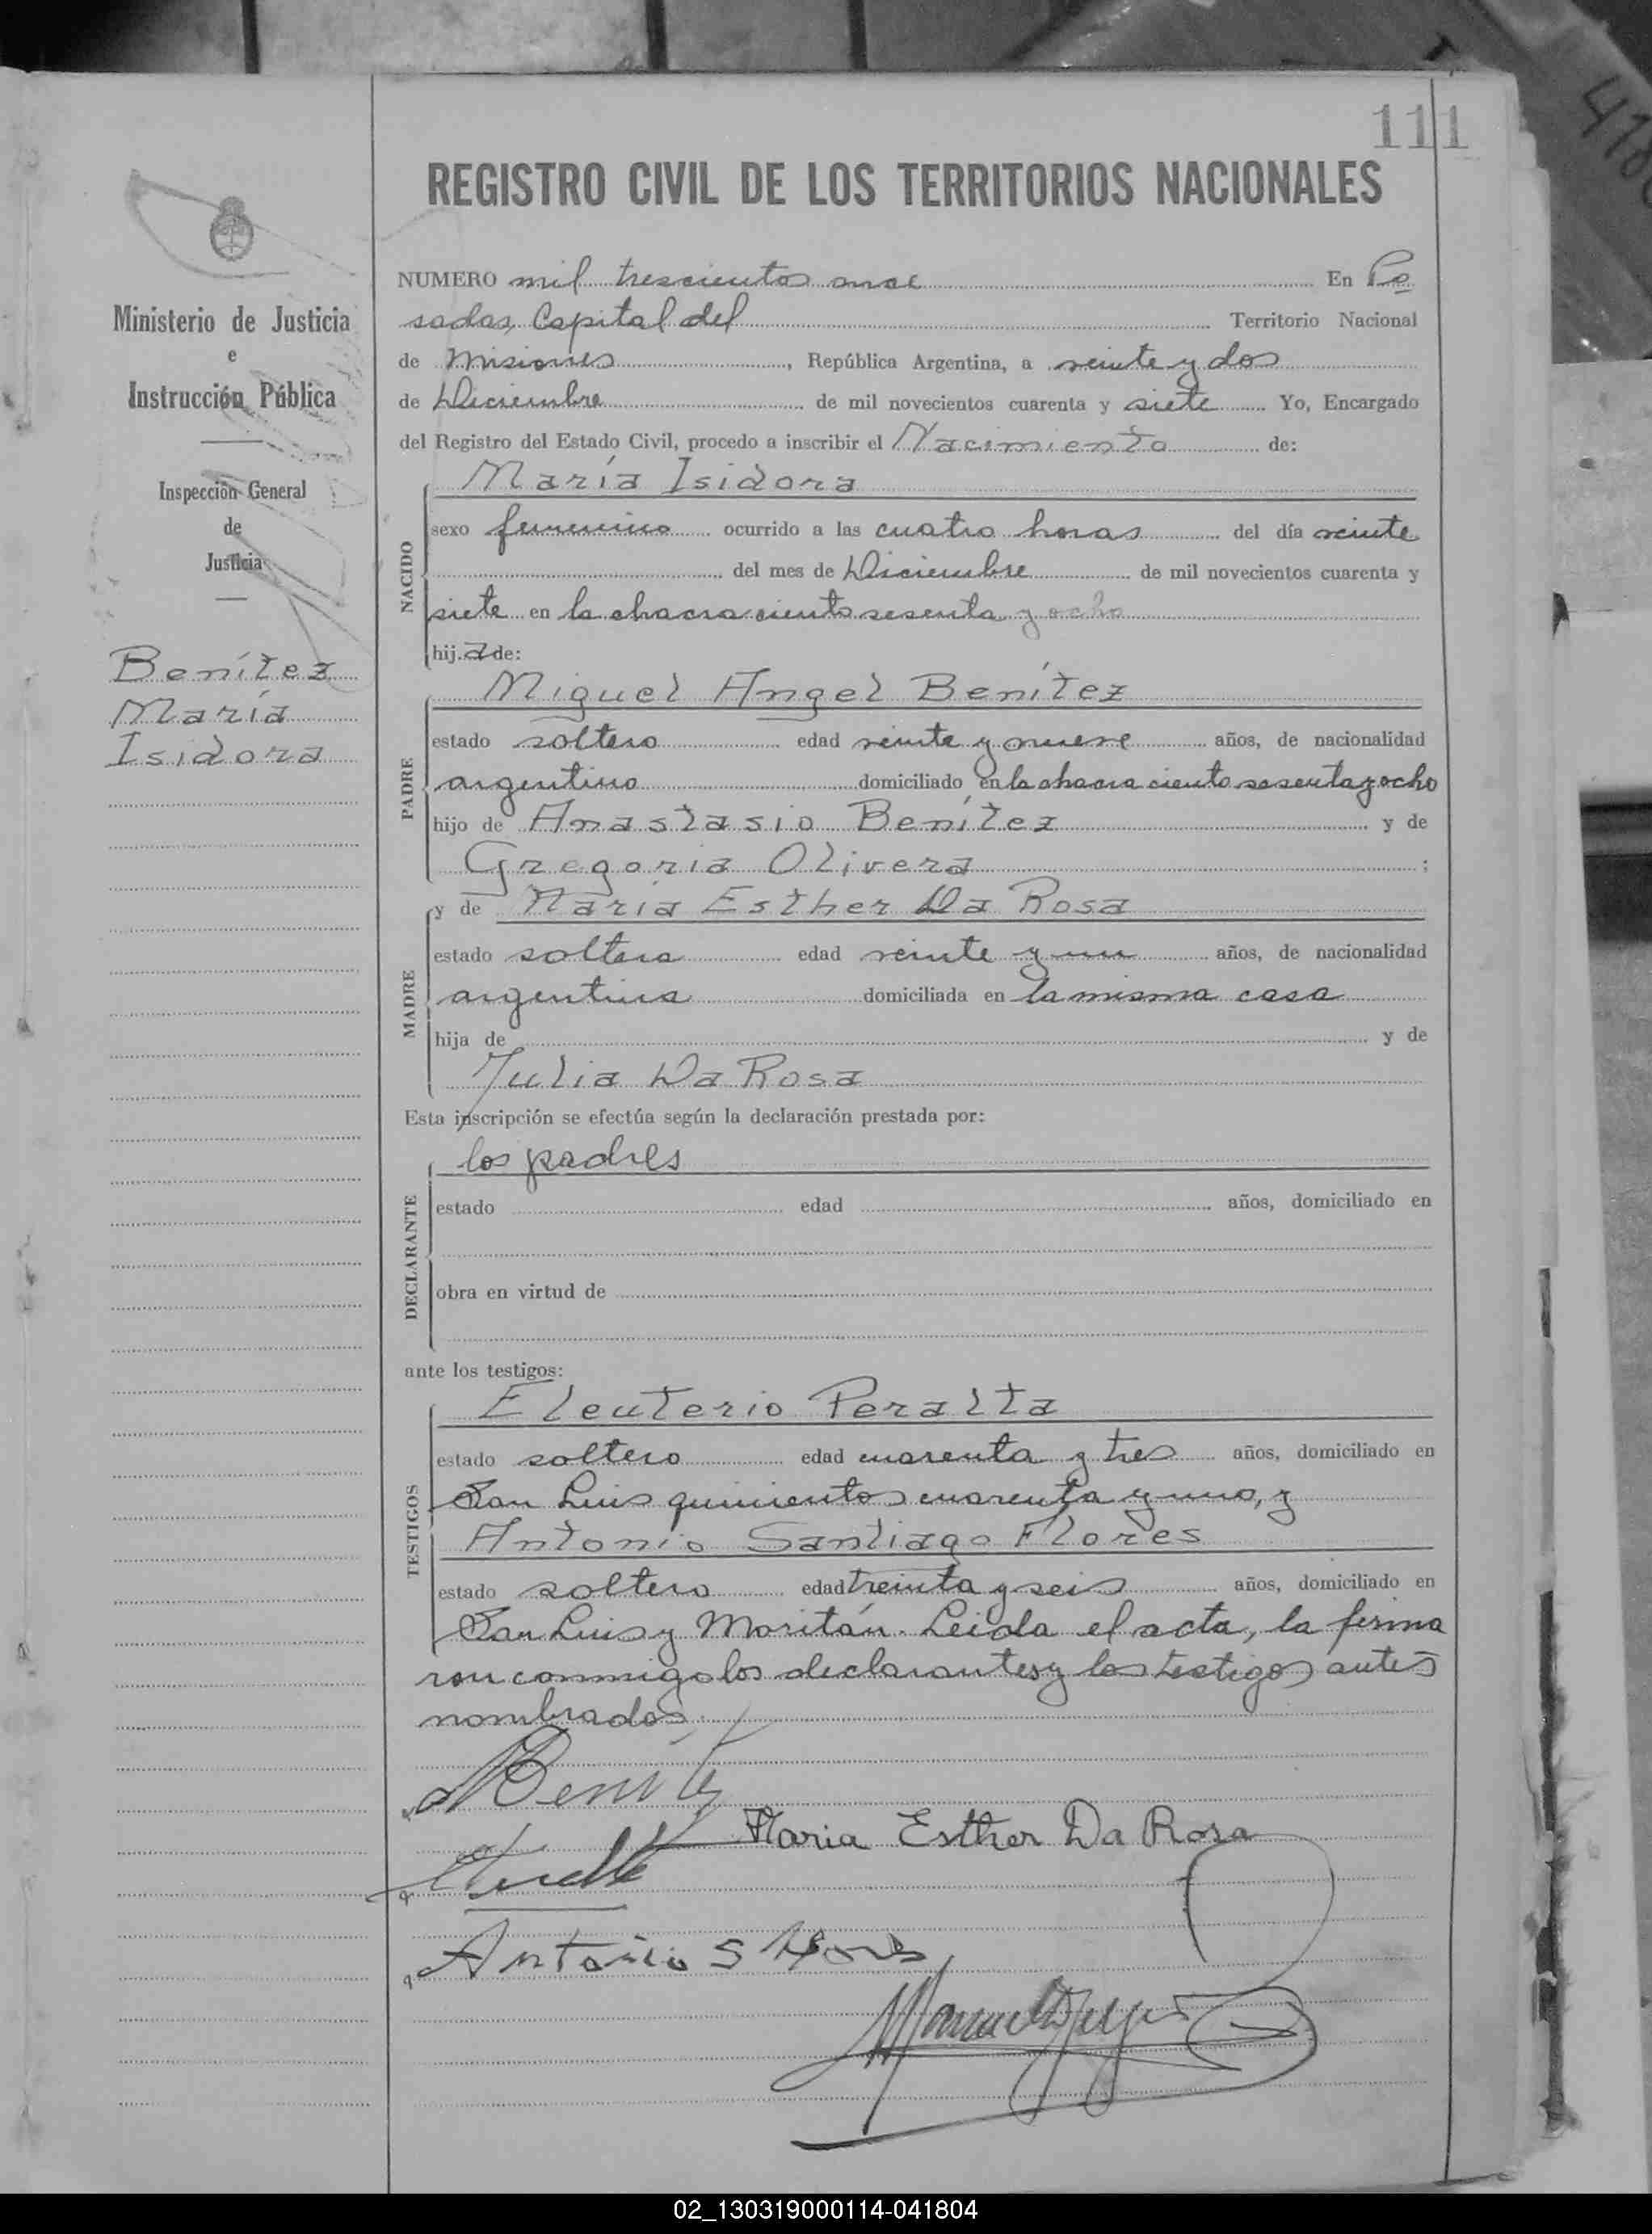 111
REGISTRO CIVIL DE LOS TERRITORIOS NACIONALES
Ministerio de Justicia
e
Instrucción Pública
Inspección General
de
Justicia
Benítez
María
Isidora
NUMERO mil trescientos once En Po
sadas, Capital del Territorio Nacional
de Misiones, República Argentina, a veinte y dos
de Diciembre de mil novecientos cuarenta y siete Yo, Encargado
del Registro del Estado Civil, procedo a inscribir el Nacimiento de:
María Isidora
NACIDO
sexo femenino ocurrido a las cuatro horas del día veinte
del mes de Diciembre de mil novecientos cuarenta y
siete en la chacra ciento sesenta y ocho
hija de:
Miguel Angel Benítez
PADRE
estado soltero edad veinte y nueve años, de nacionalidad
argentino domiciliado en la chacra ciento sesenta y ocho
hijo de Anastasio Benítez y de
Gregoria Olivera ;
y de María Esther Da Rosa
MADRE
estado soltera edad veinte y un años, de nacionalidad
argentina domiciliada en la misma casa
hija de y de
Julia Da Rosa
Esta inscripción se efectúa según la declaración prestada por:
los padres
DECLARANTE
estado edad años, domiciliado en
obra en virtud de
ante los testigos:
Eleuterio Peralta
TESTIGOS
estado soltero edad cuarenta y tres años, domiciliado en
San Luis quinientos cuarenta y uno, y
Antonio Santiago Flores
estado soltero edad treinta y seis años, domiciliado en
San Luis y Moritán. Leida el acta, la firma
ron conmigo los declarantes y los testigos antes
nombrados.
Benitez
Maria Esther Da Rosa
Antonio S Flores
02_130319000114-041804